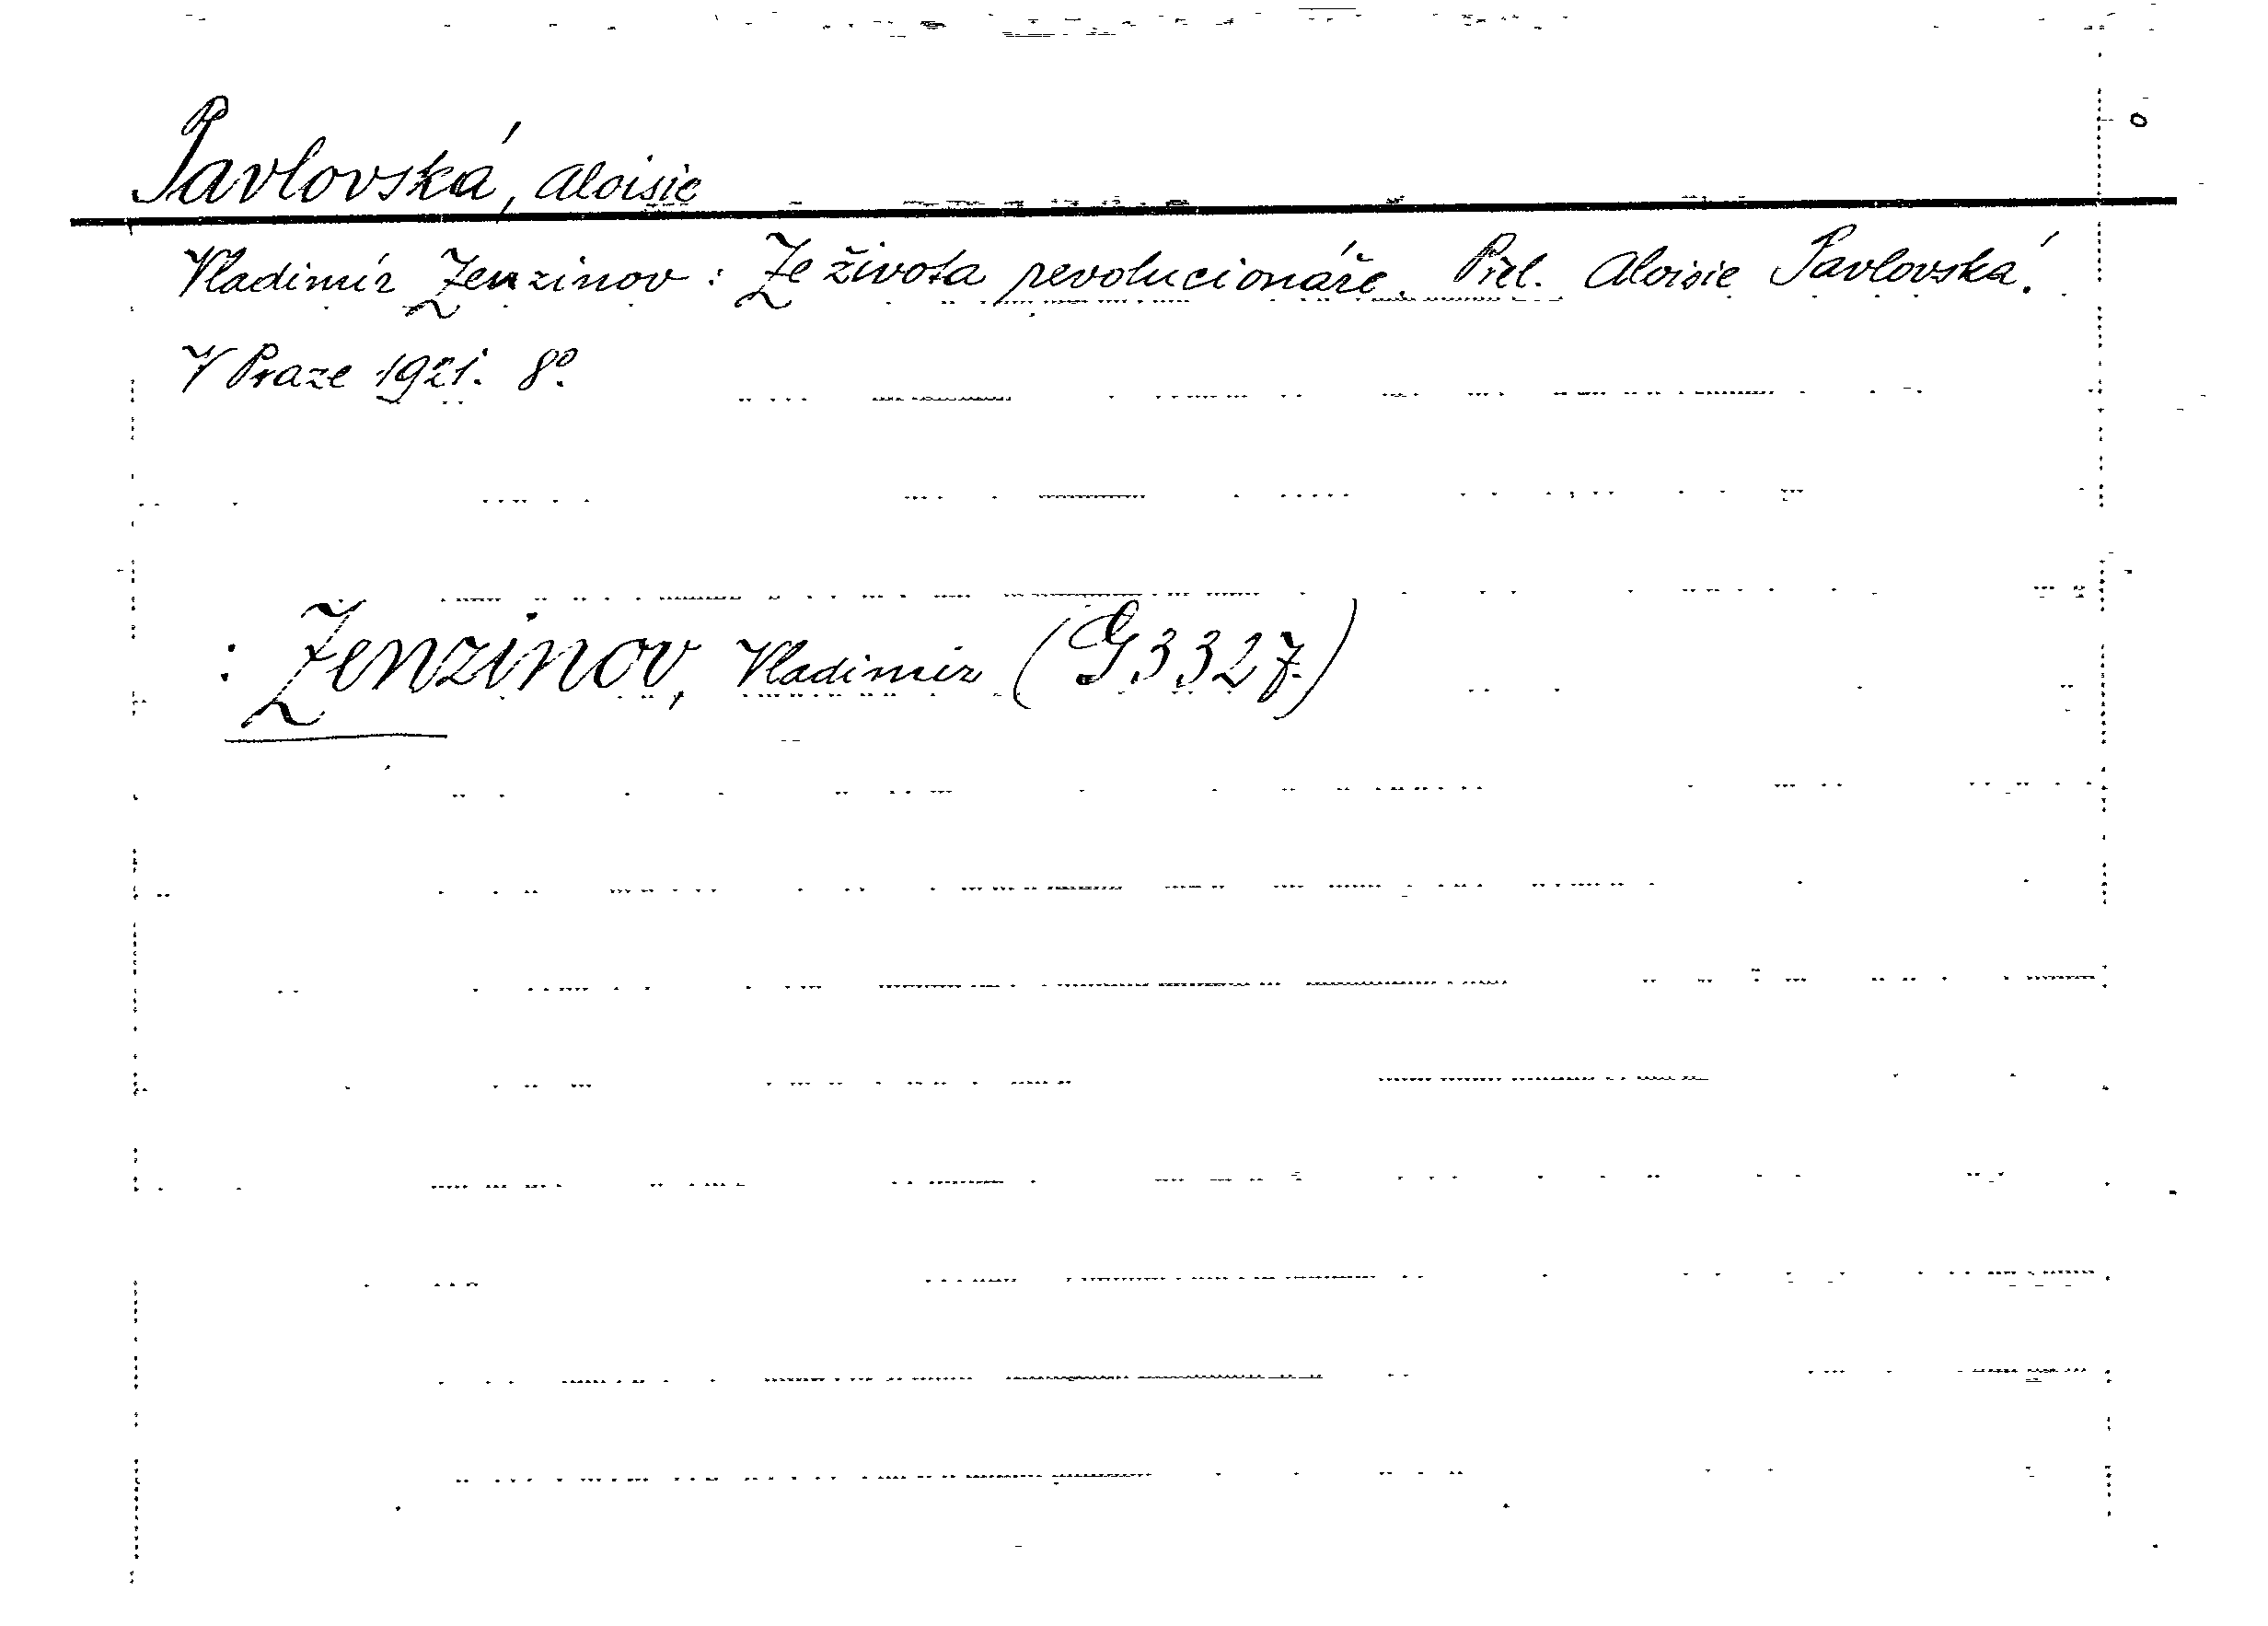 Pavlovská, Aloisie
Vladimír Zenzinov: Ze života revolucionáře. Přel. Aloisie Pavlovská.
V Praze 1921. 8°.
: Zenzinov, Vladimír (G 3327.)